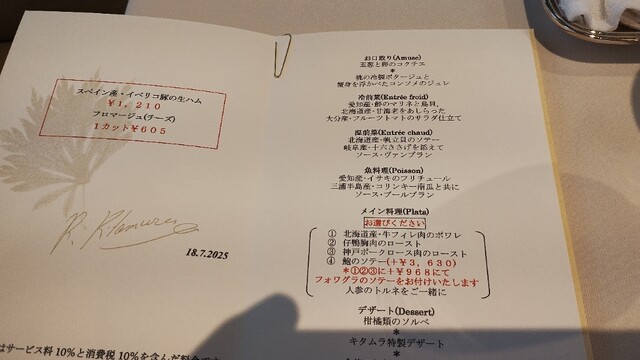 スペイン産・イベリコ豚の生ハム
￥1,210
フロマージュ(チーズ)
1カット￥605
18.7.2025
はサービス料10％と消費税10％を含んだ料金です
お口取り(Amuse)
玉葱と卵のコクテス
＊
桃の冷製ポタージュと
燻身を浮かべたコンソメのジュレ
冷前菜(Entrée froid)
愛知産・鯵のマリネと鳥貝、
北海道産・甘海老をあしらった
大分産・フルーツトマトのサラダ仕立て
温前菜(Entrée chaud)
北海道産・帆立貝のソテー
岐阜産・十六ささげを添えて
ソース・ヴァンブラン
魚料理(Poisson)
愛知産・イサキのフリチュール
三浦半島産・コリンキー南瓜と共に
ソース・ブールブラン
メイン料理(Plats)
お選びください
① 北海道産・牛フィレ肉のポワレ
② 仔鴨胸肉のロースト
③ 神戸ポークロース肉のロースト
④ 鮑のソテー(＋￥3,630)
＊①②③に＋￥968にて
フォワグラのソテーをお付けいたします
人参のトルネをご一緒に
デザート(Dessert)
柑橘類のソルベ
＊
キタムラ特製デザート
＊